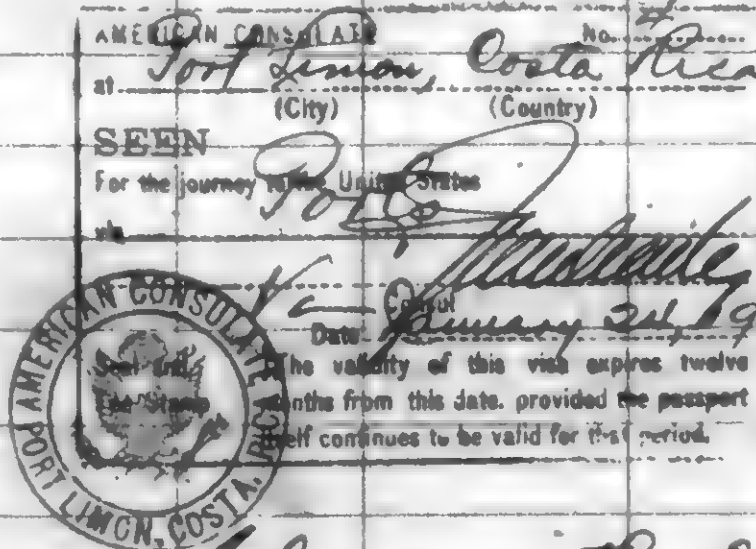 AMERICAN CONSULATE No. 4
at Port Limon, Costa Rica
(City) (Country)
SEEN
For the journey to the United States
via
Consul
Date January 24, 19
Seal and The validity of this visa expires twelve
Fee Stamp months from this date, provided the passport
itself continues to be valid for that period.
AMERICAN CONSULATE
PORT LIMON, COSTA RICA